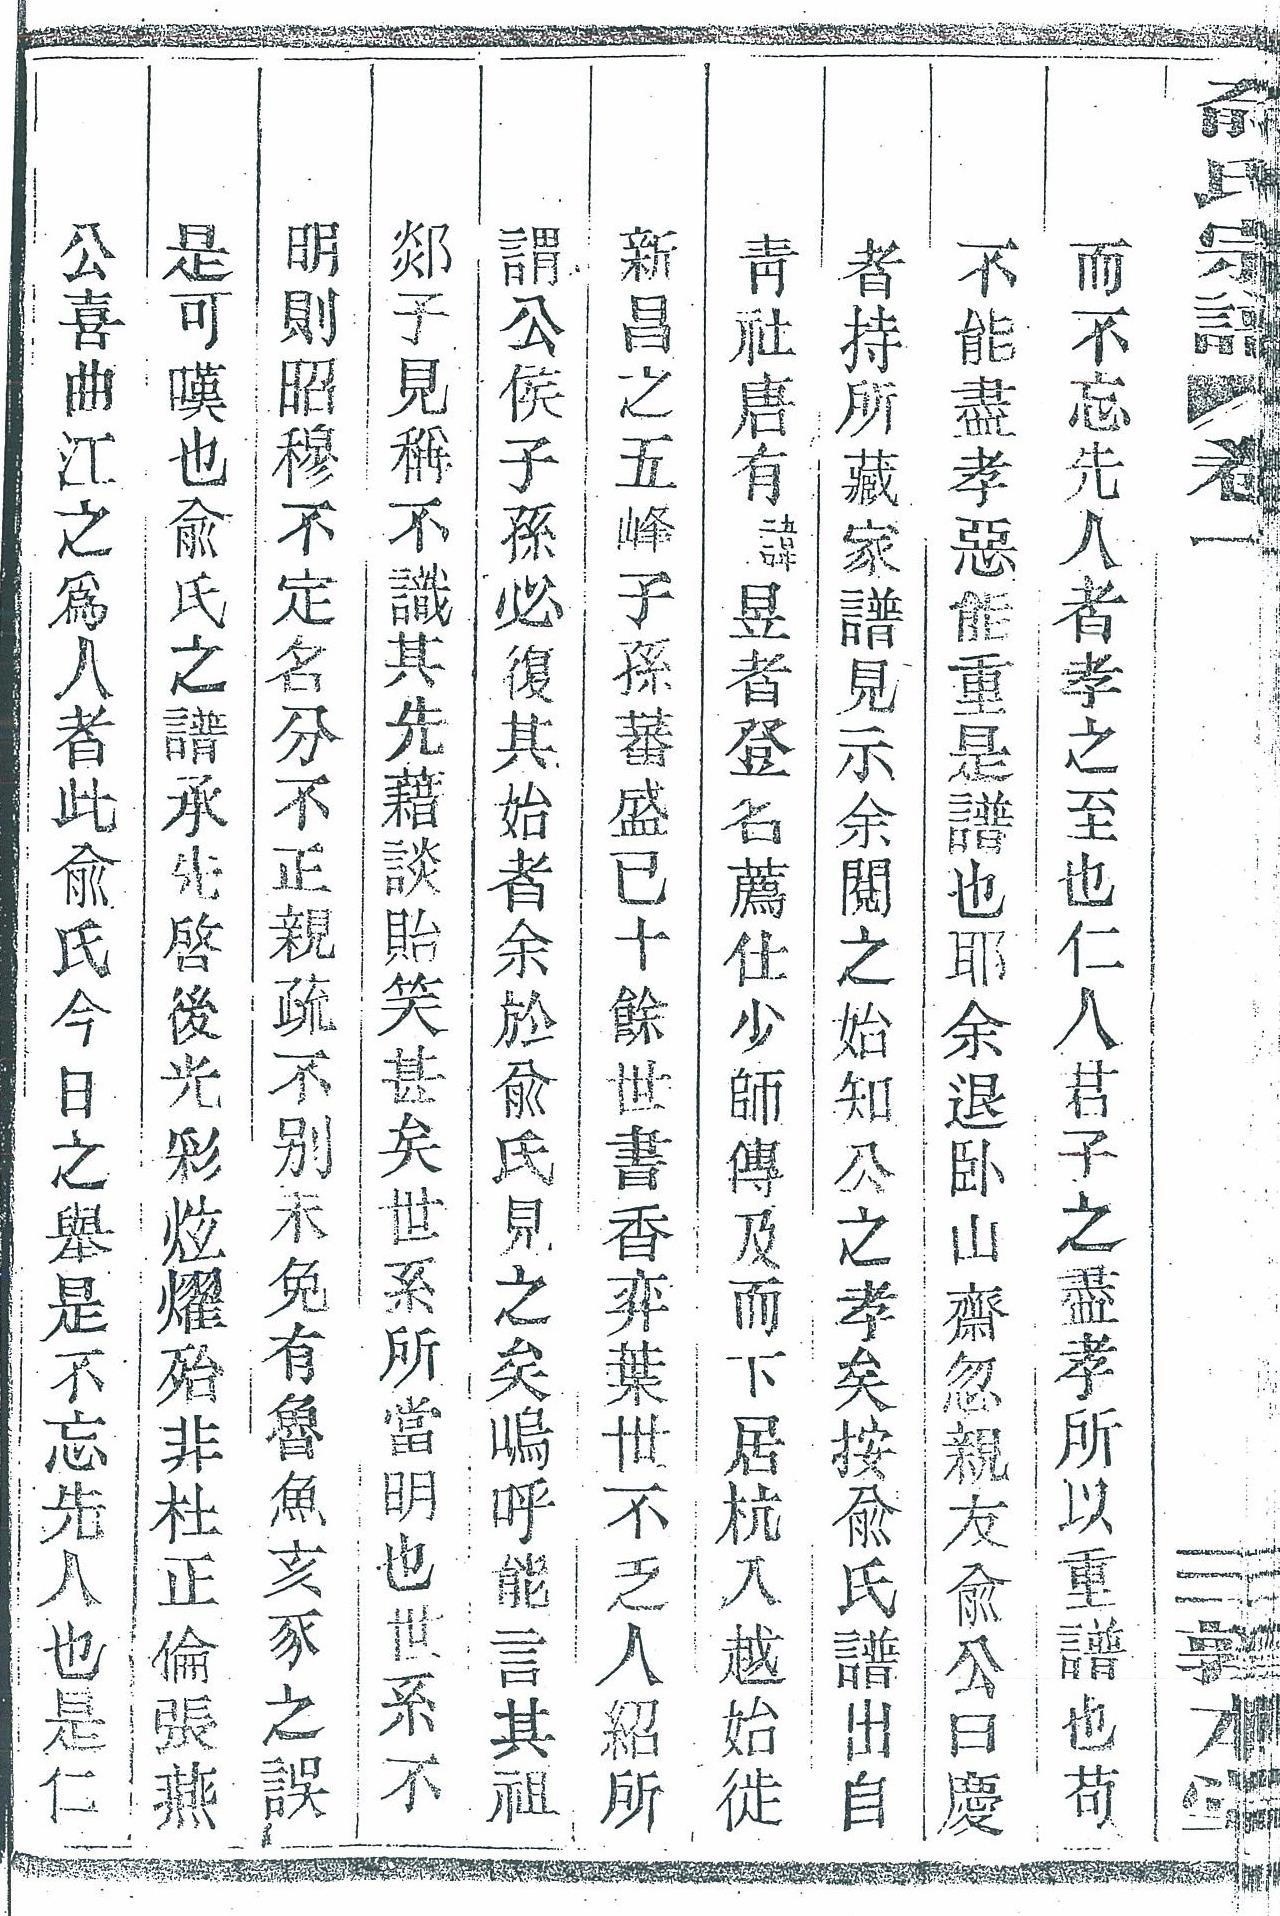 俞氏宗譜 卷一
而不忘先人者孝之至也仁人君子之盡孝所以重譜也苟
不能盡孝惡能重是譜也耶余退卧山齋忽親友俞公曰慶
者持所藏家譜見示余閱之始知公之孝矣按俞氏譜出自
青社唐有諱昱者登名薦仕少師傳及而下居杭入越始徙
新昌之五峰子孫蕃盛已十餘世書香弈葉世不乏人紹所
謂公侯子孫必復其始者余於俞氏見之矣嗚呼能言其祖
郯子見稱不識其先藉談貽笑甚矣世系所當明也世系不
明則昭穆不定名分不正親疏不別未免有魯魚亥豕之誤
是可嘆也俞氏之譜承先啓後光彩炫耀殆非杜正倫張燕
公喜曲江之爲人者此俞氏今日之舉是不忘先人也是仁